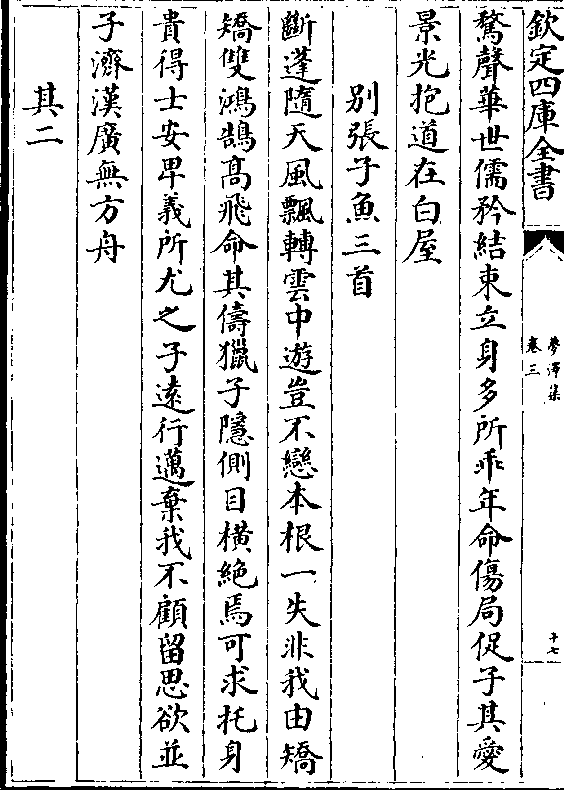 欽定四庫全書
夢澤集
卷三
十七
騖聲華世儒矜結束立身多所乖年命傷局促子其愛
景光抱道在白屋
別張子魚三首
斷蓬隨天風飄轉雲中遊豈不戀本根一失非我由矯
矯雙鴻鵠高飛命其儔獵子隱側目橫絶焉可求托身
貴得士安卑義所尤之子逺行邁棄我不顧留思欲並
子濟漢廣無方舟
其二